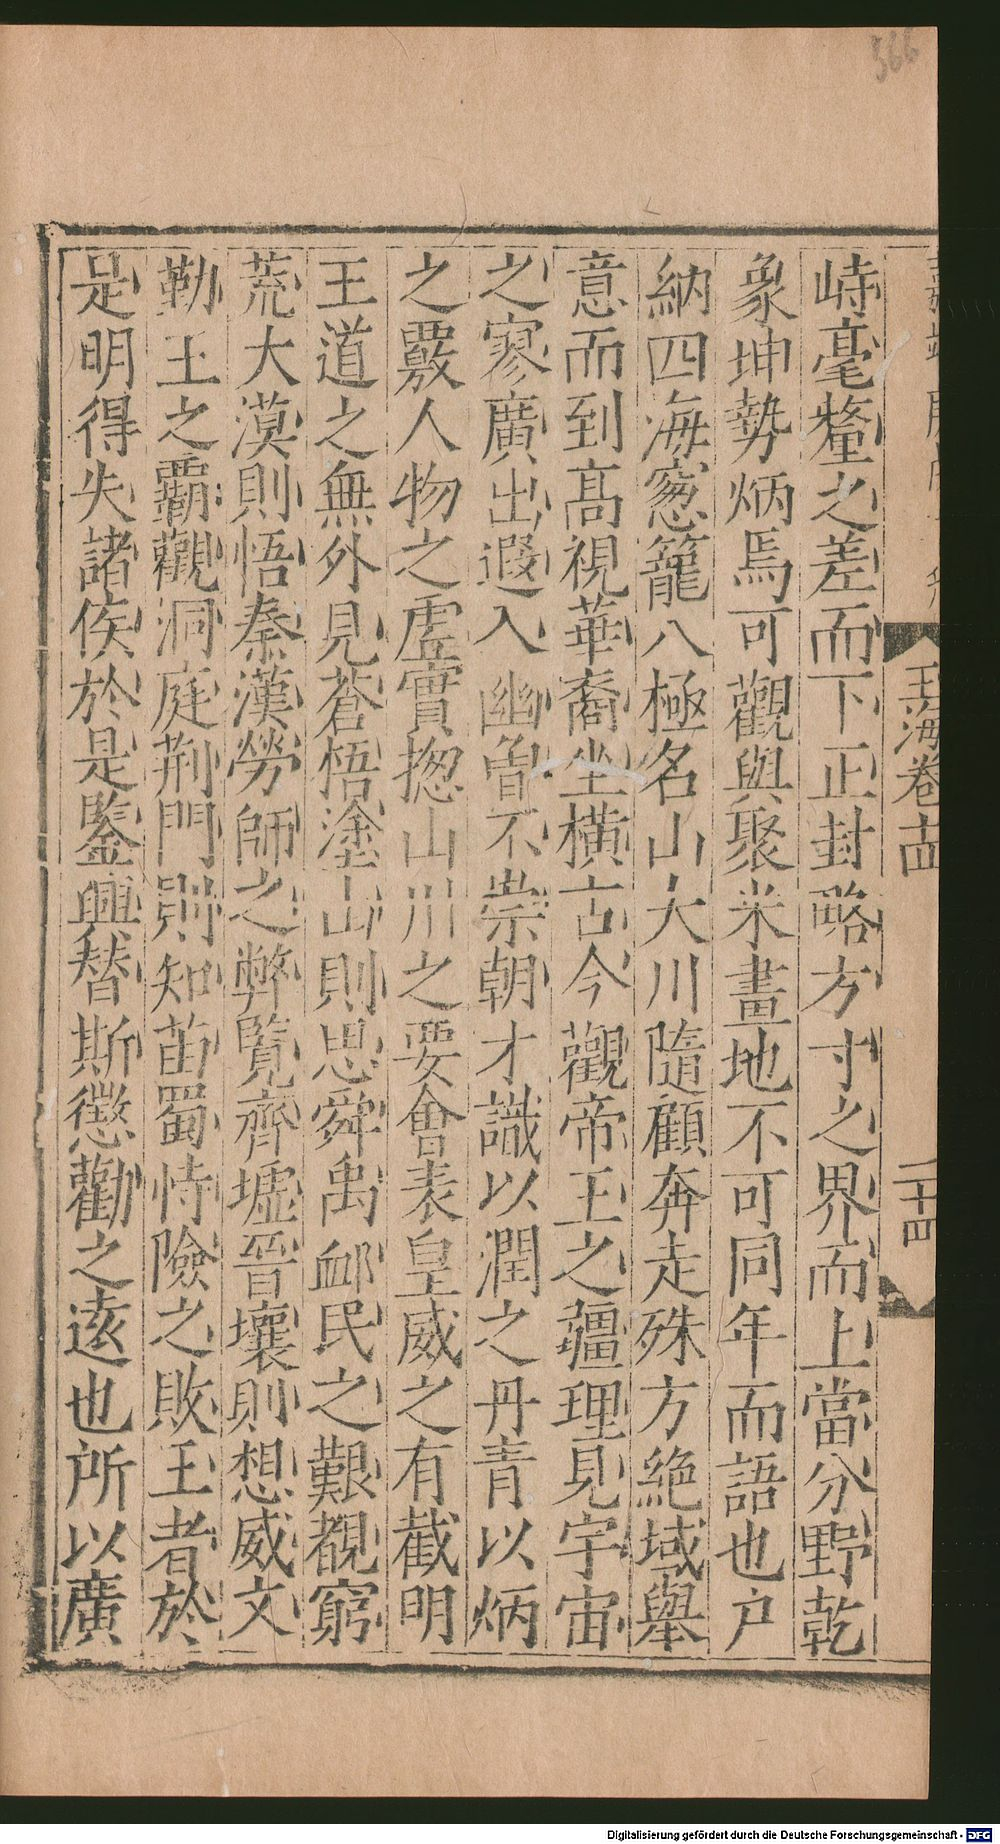 566
玉海卷十四
二十四
峙毫釐之差而下正封略方寸之界而上當分野乾
象坤勢炳焉可觀與聚米畫地不可同年而語也戶
納四海窓籠八極名山大川隨顧奔走殊方絶域舉
意而到高視華裔坐橫古今觀帝王之疆理見宇宙
之寥廣出遐入幽曾不崇朝才識以潤之丹青以炳
之覈人物之虛實揔山川之要會表皇威之有截明
王道之無外見蒼梧塗山則思舜禹䘏民之艱覩窮
荒大漠則悟秦漢勞師之弊覽齊墟晉壤則想威文
勤王之覇觀洞庭荆門則知苗蜀恃險之敗王者於
是明得失諸侯於是鑒興替斯懲勸之逺也所以廣
Digitalisierung gefördert durch die Deutsche Forschungsgemeinschaft - DFG